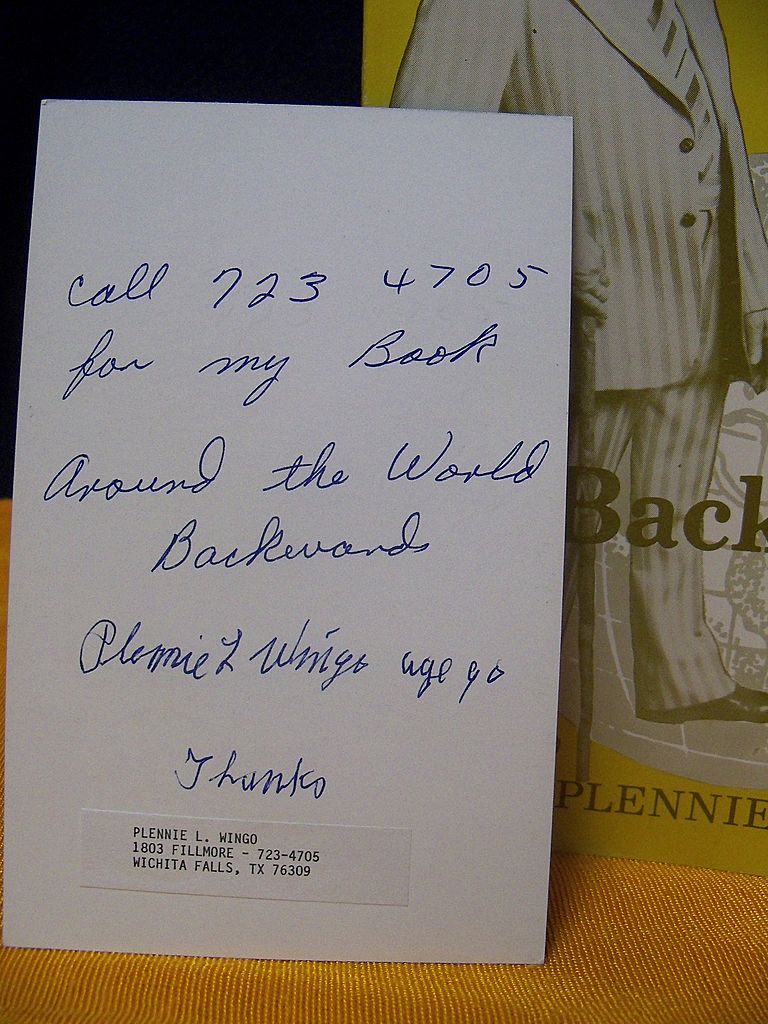 call 723 4705
for my Book
Around the World
Backwards
Plennie L Wingo age 90
Thanks
PLENNIE L. WINGO
1803 FILLMORE - 723-4705
WICHITA FALLS, TX 76309
Back
PLENNIE